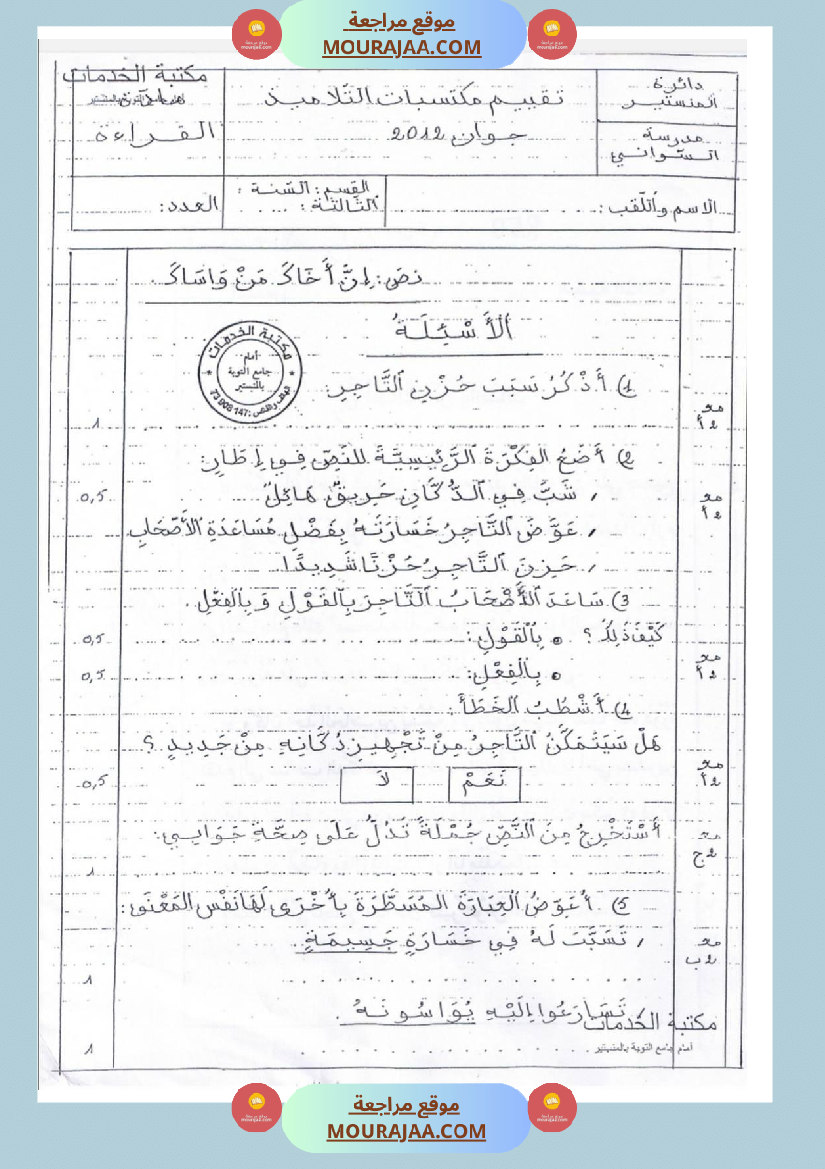 موقع مراجعة
MOURAJAA.COM
دائرة المنستير
تقييم مكتسبات التّلاميذ
مكتبة الخدمات
مدرسة السّواني
جوان 2012
القراءة
الاسم واللّقب : . . . . . . .
القسم : السّنة الثّالثة : . . . . .
العدد :
نص : إِنَّ أَخَاكَ مَنْ وَاسَاكَ
الأَسْئِلَةُ
مكتبة الخدمات
أمام
جامع التوبة
بالمنستير
1) أَذْكُرُ سَبَبَ حُزْنِ التَّاجِرِ :
مع 2 أ
1
2) أَضَعُ الفِكْرَةَ الرَّئِيسِيَّةَ للنَّصِّ فِي إِطَارٍ :
مع 2 أ
, شَبَّ فِي الدُّكَّانِ حَرِيقٌ هَائِلٌ
0,5
, عَوَّضَ التَّاجِرُ خَسَارَتَهُ بِفَضْلِ مُسَاعَدَةِ الأَصْحَابِ
, حَزِنَ التَّاجِرُ حُزْنًا شَدِيدًا
3) سَاعَدَ الأَصْحَابُ التَّاجِرَ بِالقَوْلِ وَ بِالفِعْلِ .
كَيْفَ ذَلِكَ ؟ • بِالْقَوْلِ :
0,5
مع 2 أ
• بِالْفِعْلِ :
0,5
4) أَشْطُبُ الخَطَأَ :
هَلْ سَيَتَمَكَّنُ التَّاجِرُ مِنْ تَجْهِيزِ دُكَّانِهِ مِنْ جَدِيدٍ ؟
مع 2 أ
نَعَمْ
لَا
0,5
أَسْتَخْرِجُ مِنَ النَّصِّ جُمْلَةً تَدُلُّ عَلَى صِحَّةِ جَوَابِي :
مع 2 ج
1
5) أُعَوِّضُ العِبَارَةَ المُسَطَّرَةَ بِأُخْرَى لَهَا نَفْسُ المَعْنَى :
مع 2 ب
, تَسَبَّبَ لَهُ فِي خَسَارَةٍ جَسِيمَةٍ .
1
, تَسَارَعُوا إِلَيْهِ يُوَاسُونَهُ .
مكتبة الخدمات
أمام جامع التوبة بالمنستير
1
موقع مراجعة
MOURAJAA.COM